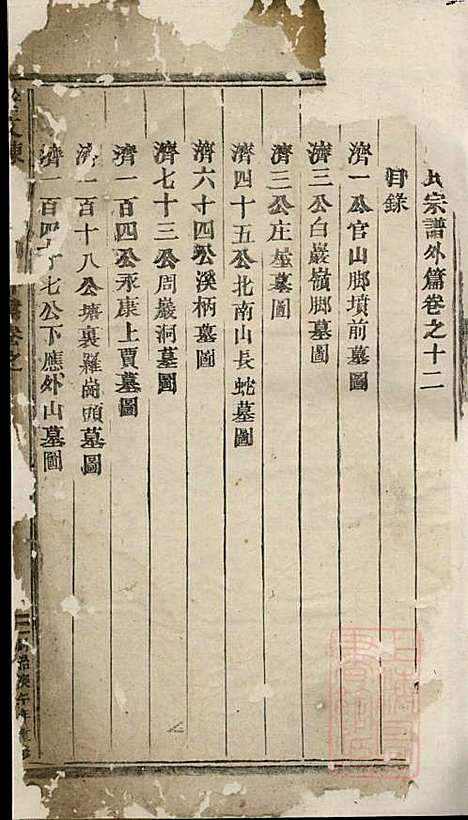 氏宗譜外篇卷之十二
目錄
濟一公官山脚墳前墓圖
濟三公白巖嶺脚墓圖
濟三公庄屋墓圖
濟四十五公北南山長蛇墓圖
濟六十四公溪柄墓圖
濟七十三公周巖洞墓圖
濟一百四公永康上賈墓圖
濟一百十八公塘裏羅崗頭墓圖
濟一百四十七公下應外山墓圖